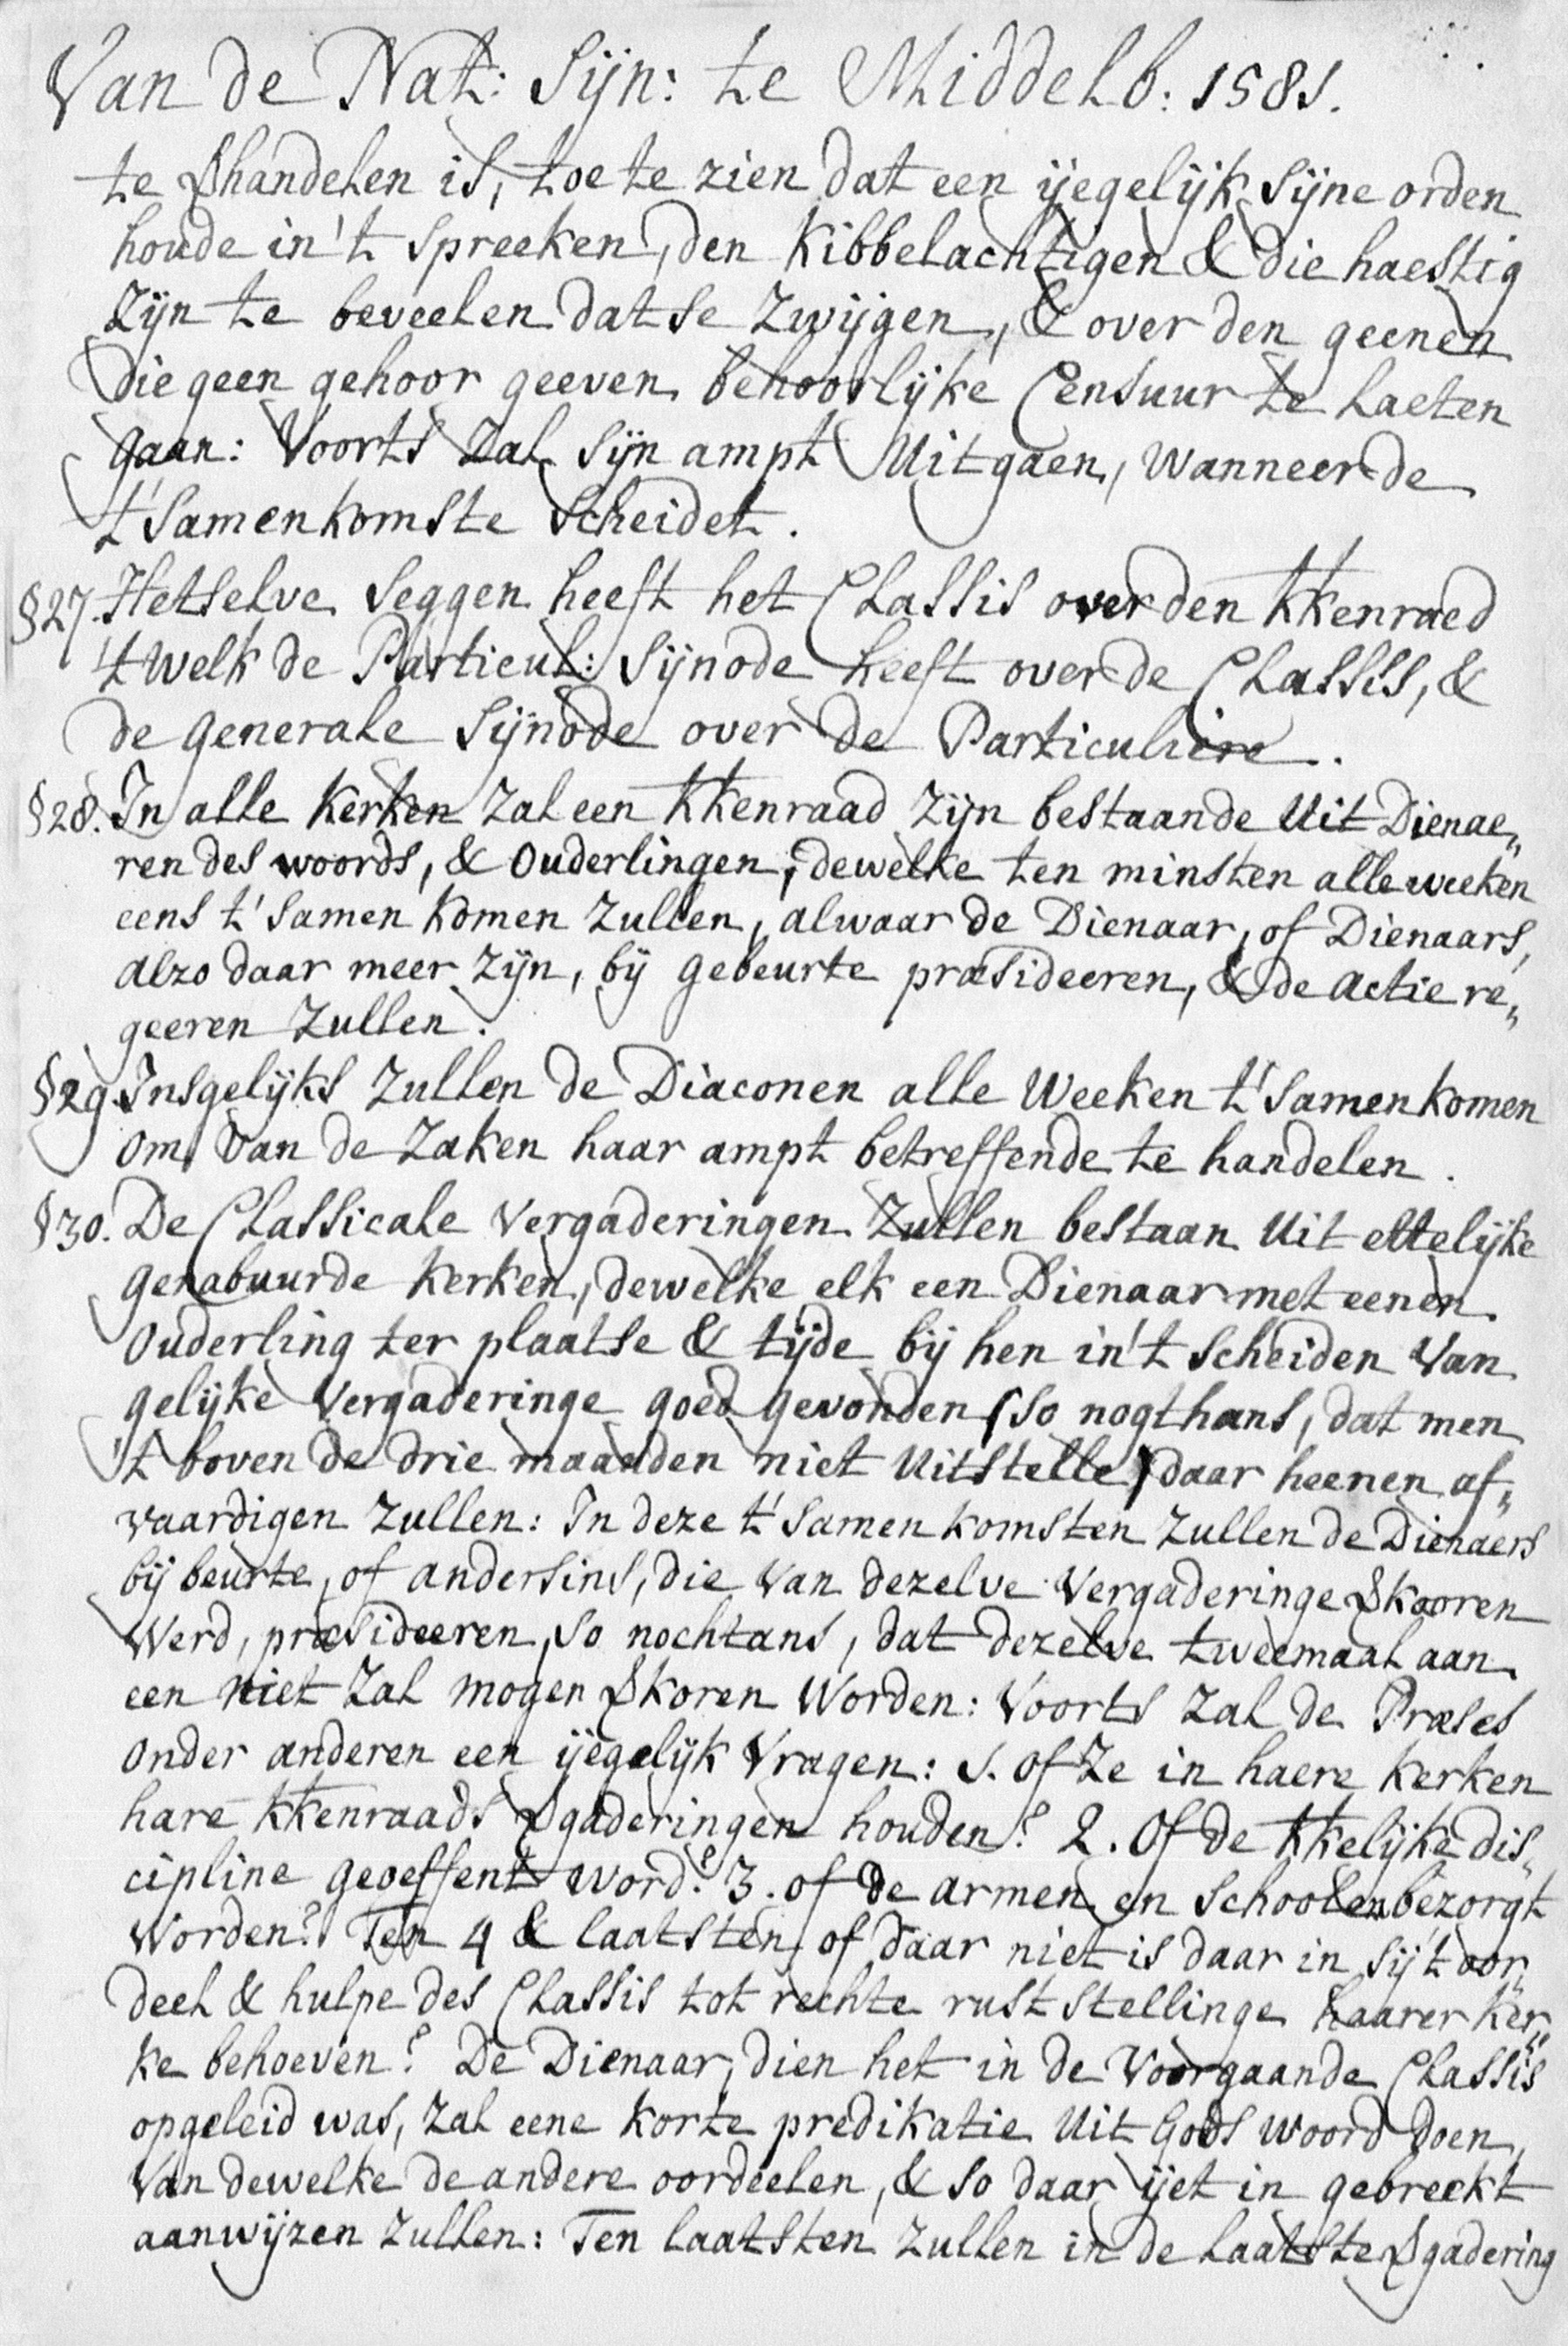 Van de Nat: Sijn: te Middelb: 1581.
te Vhandelen is, toe te zien dat een ijegelijk sijne orden
houde in 't spreeken, den kibbelachtigen & die haestig
Zijn te beveelen datse Zwijgen, & over den geenen
die geen gehoor geeven behoorlijke Censuur te laeten
gaan: Voorts Zal sijn ampt Uitgaen, Wanneer de
t'samenkomste scheidet.
§27. Hetselve seggen heeft het Classis over den kkenraed
't welk de Particul: Sijnode heeft over de Classis, &
de generale Sijnode over de Particuliere.
§28. In alle Kerken Zal een kkenraad Zijn bestaande Uit Dienae„
ren des woords, & Ouderlingen, dewelke ten minsten alle weeken
eens t'samen komen Zullen, alwaar de Dienaar, of Dienaars,
alzo daar meer Zijn, bij gebeurte præsideeren, & de actie re„
geeren Zullen.
§29. Insgelijks Zullen de Diaconen alle Weeken t'samenkomen
om van de Zaken haar ampt betreffende te handelen.
§30. De Classicale Vergaderingen Zullen bestaan Uit ettelijke
genabuurde kerken, dewelke elk een Dienaar met eenen
Ouderling ter plaatse & tijde bij hen in't scheiden Van
gelijke Vergaderinge goed gevonden (so nogthans, dat men
't boven de drie maanden niet Uitstelle) daar heenen af„
vaardigen Zullen: In deze t'samenkomsten Zullen de Dienaers
bij beurte, of andersins, die van dezelve Vergaderinge Vkooren
Werd, præsideeren, so nochtans, dat dezelve tweemaal aan
een niet Zal mogen Vkoren Worden: Voorts Zal de Præses
onder anderen een ijegelijk Vragen: 1. of Ze in haere kerken
hare kkenraads Vgaderingen houden? 2. Of de kkelijke dis„
cipline geoeffent word? 3. of de armen en schoolen bezorgt
Worden? Ten 4 & laatsten of daar niet is daar in sij 't oor„
deel & hulpe des Classis tot rechte ruststellinge haarer ker„
ke behoeven? De Dienaar, dien het in de Voorgaande Classis
opgeleid was, Zal eene korte predikatie Uit Gods Woord doen,
Van dewelke de andere oordeelen, & so daar ijet in gebreekt
aanwijzen Zullen: Ten laatsten Zullen in de laatste Vgadering